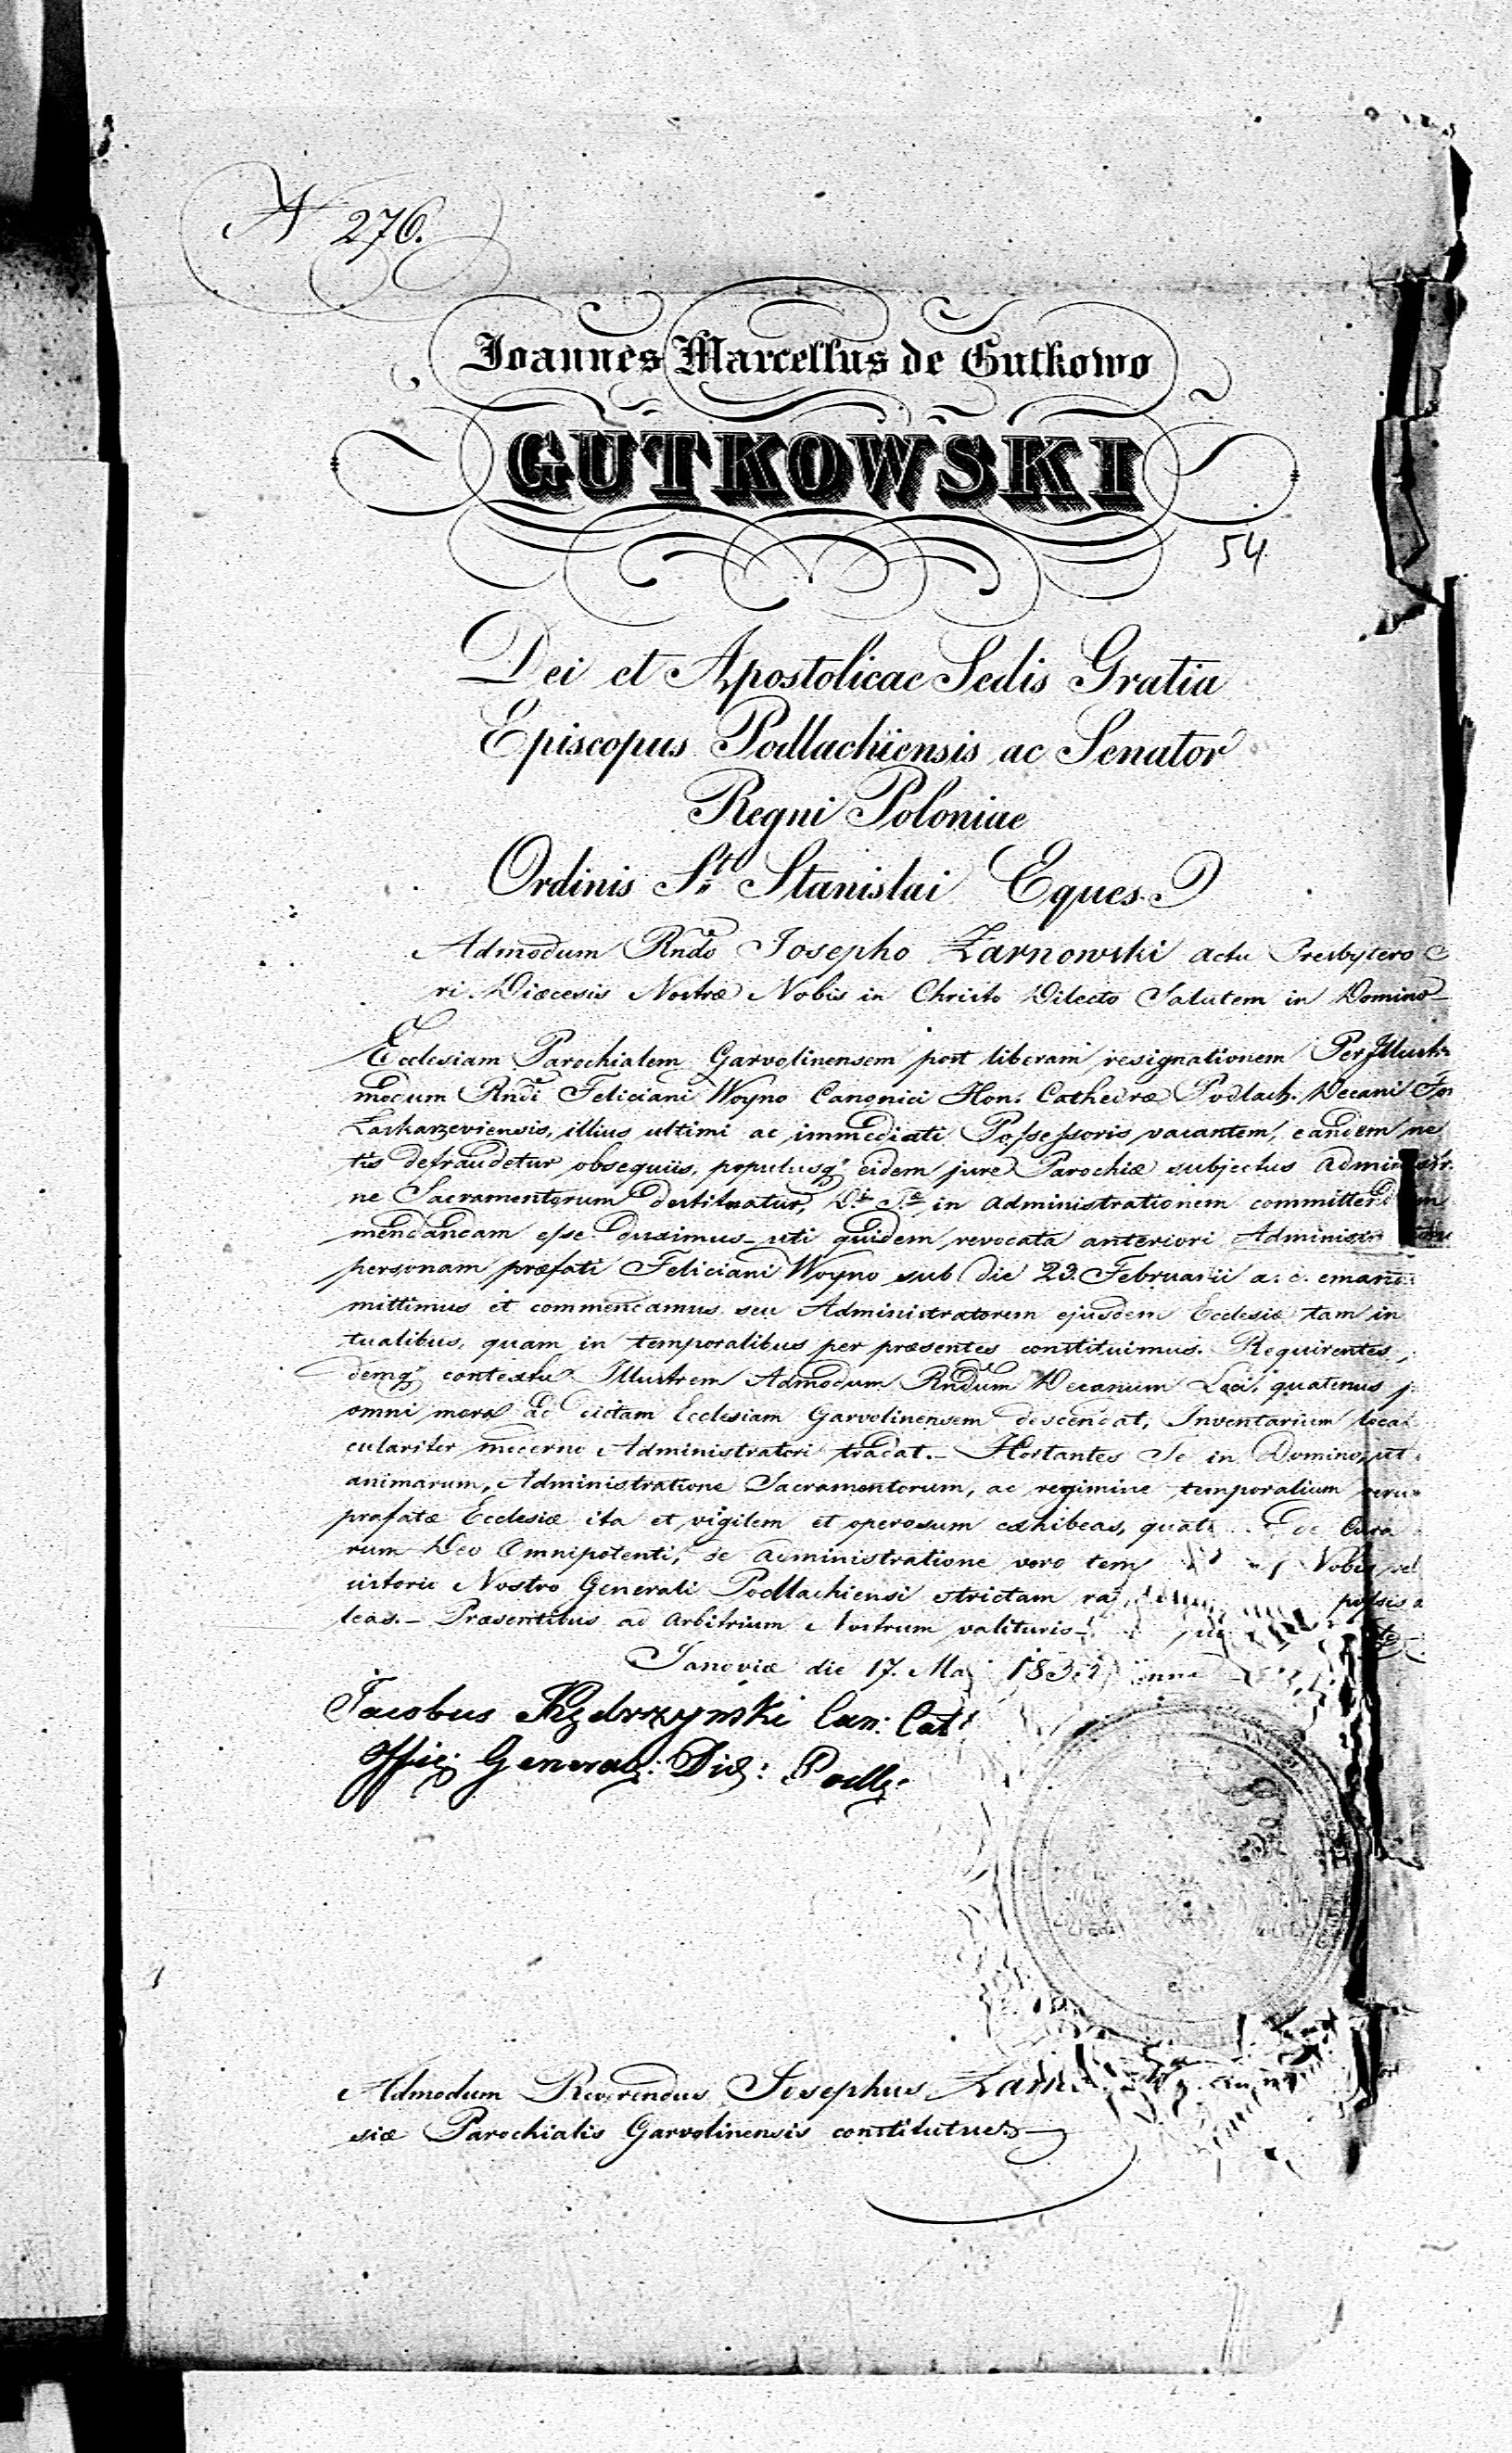 N 276.
Joannes Marcellus de Gutkowo
GUTKOWSKI
54
Dei et Apostolicae Sedis Gratia
Episcopus Podlachiensis ac Senator
Regni Poloniae
Ordinis Sti Stanislai Eques
Admodum Rndo Josepho Żarnowski actu Presbytero
ri Diœcesis Nostræ Nobis in Christo Dilecto Salutem in Domino
Ecclesiam Parochialem Garvolinensem post liberam resignationem PerIllustr
modum Rndi Feliciani Woyno Canonici Hon. Cathedræ Podlach. Decani
Łaskarzeviensis, illius ultimi ac immediati Possessoris vacantem, eandem ne
tis defraudetur obsequiis, populusq eidem jure Parochiæ subjectus
ne Sacramentorum destituatur, in administrationem
mendandam esse duximus uti quidem revocata anteriori
personam præfati Feliciani Woyno sub die 23. Februarii a. c.
mittimus et commendamus seu Administratorem ejusdem Ecclesiæ tam in
tualibus, quam in temporalibus per præsentes constituimus. Requirentes
demq contextu Illustrem Admodum Rndum Decanum Loci, quatenus
omni mora ad dictam Ecclesiam Garvolinensem descendat, Inventarium
culariter moderno Administratori tradat. Hortantes Te in Domino, ut
animarum, Administratione Sacramentorum, ac regimine temporalium
præfatæ Ecclesiæ ita et vigilem et operosum exhibeas, de Cura
rum Deo Omnipotenti, de administratione vero Nobis vel
istorio Nostro Generali Podlachiensi strictam possis
leas. Præsentibus ad Arbitrium Nostrum valituris
Janoviæ die 17. Maj
Jacobus Kędrzyński Can: Cat:
Offic: General: Diœ: Podl:
Admodum Reverendus Josephus
siæ Parochialis Garvolinensis constituitur